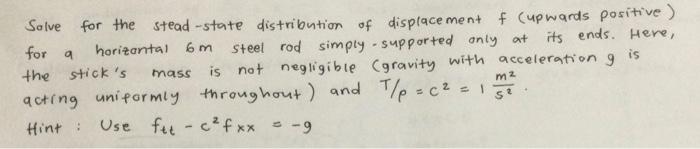 Solve for the stead-state distribution of displacement f (upwards positive)
for a horizontal 6m steel rod simply-supported only at its ends. Here,
the stick's mass is not negligible (gravity with acceleration g is
acting uniformly throughout) and T/ρ = c² = 1 m²/s².
Hint : Use ftt - c²fxx = -g